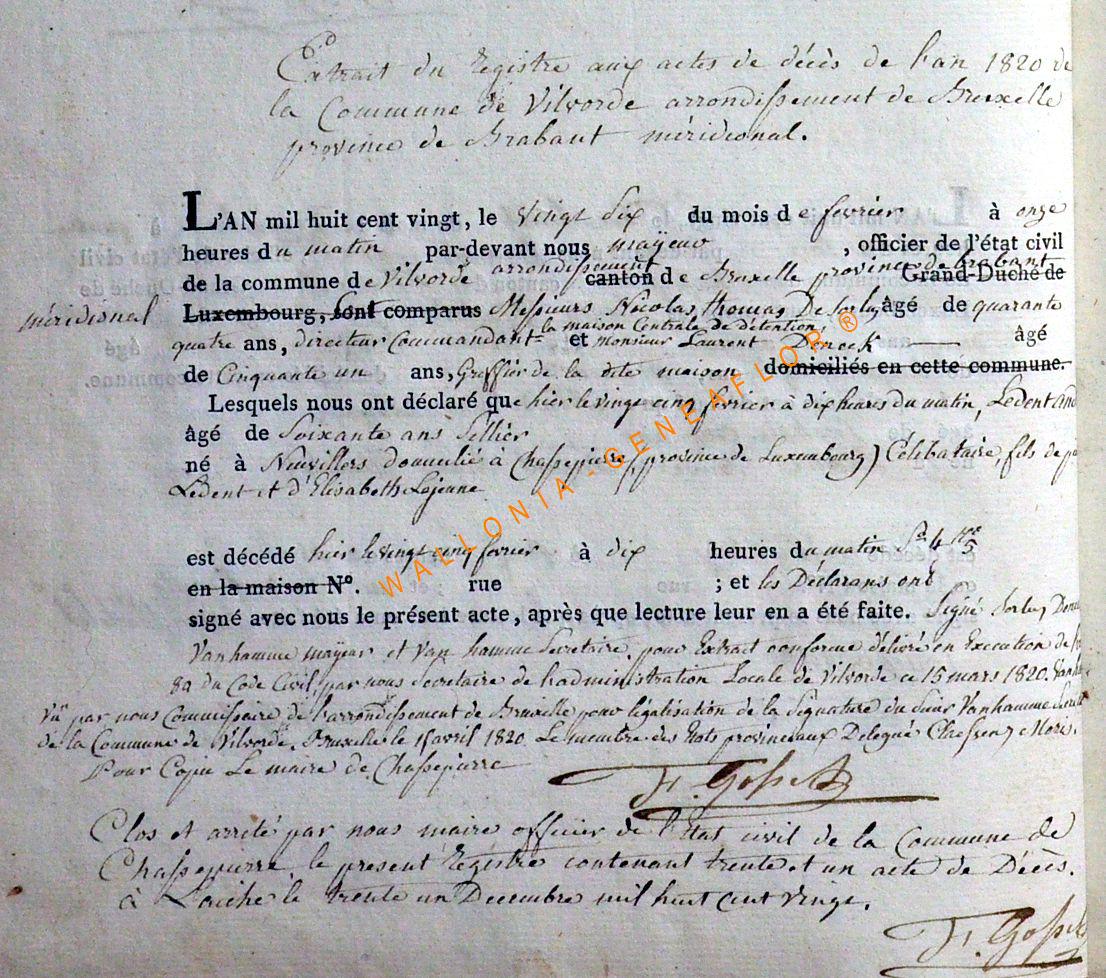 Extrait du Registre aux actes de décès de l'an 1820 de
la Commune de Vilvorde arrondissement de Bruxelle
province de Brabant méridional.
L'AN mil huit cent vingt, le vingt six du mois de fevrier à onze
heures du matin par-devant nous mayeur, officier de l'état civil
de la commune de Vilvorde arrondissement canton de Bruxelle province de brabant Grand-Duché de
méridional Luxembourg, sont comparus Messieurs Nicolas thomas De âgé de quarante
quatre ans, directeur Commandant la maison Centrale de détention, et monsieur Laurent Denoek âgé
de Cinquante un ans, Greffier de la dite maison domiciliés en cette commune.
Lesquels nous ont déclaré que hier le vingt cinq fevrier à dix heures du matin, Ledent
âgé de Soixante ans Sellier
né à Neuvillers domicilié à Chassepierre, province de Luxembourg) Célibataire, fils de
Ledent et d'Elisabeth Lejeune
est décédé hier le vingt cinq fevrier à dix heures du matin
en la maison N°. rue ; et les Déclarans ont
signé avec nous le présent acte, après que lecture leur en a été faite. Signé
Vanhamme mayeur et Van hamme Secretaire. pour Extrait conforme délivré en Execution de
82 du Code Civil, par nous Secretaire de l'administration Locale de Vilvorde ce 15 mars 1820.
Vu par nous Commissaire de l'arrondissement de Bruxelle pour légalisation de la Signature du Sieur Vanhamme
de la Commune de Vilvorde. Bruxelle le 15 avril 1820. Le membre des Etats provinceaux Delegué
Pour Copie Le maire de Chassepierre
Clos et arrêté par nous maire officier de l'Etat civil de la Commune de
Chassepierre, le present Registre contenant trente et un acte de Décès.
à Laiche le trente un Decembre mil huit cent vingt.
WALLONIA-GENEAFLOR ®